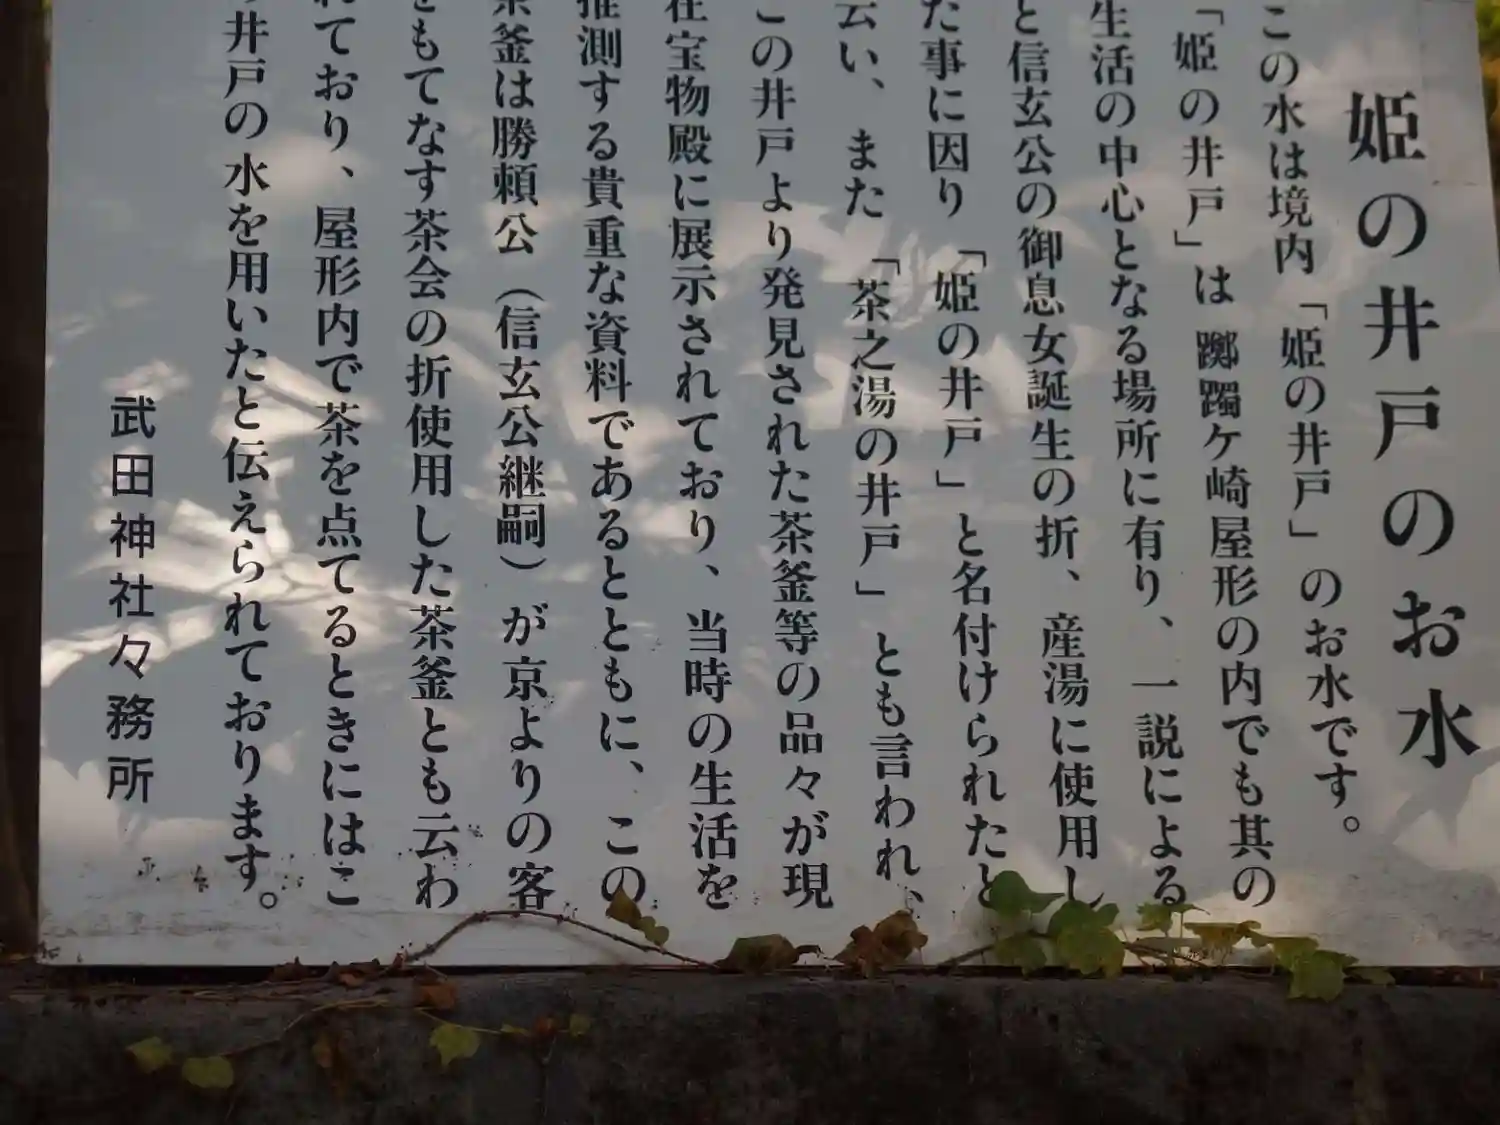 姫の井戸のお水
この水は境内「姫の井戸」のお水です。
「姫の井戸」は躑躅ケ崎屋形の内でも其の
生活の中心となる場所に有り、一説による
と信玄公の御息女誕生の折、産湯に使用し
た事に因り「姫の井戸」と名付けられたと
云い、また「茶之湯の井戸」とも言われ、
この井戸より発見された茶釜等の品々が現
在宝物殿に展示されており、当時の生活を
推測する貴重な資料であるとともに、この
茶釜は勝頼公（信玄公継嗣）が京よりの客
をもてなす茶会の折使用した茶釜とも云わ
れており、屋形内で茶を点てるときにはこ
の井戸の水を用いたと伝えられております。
武田神社々務所